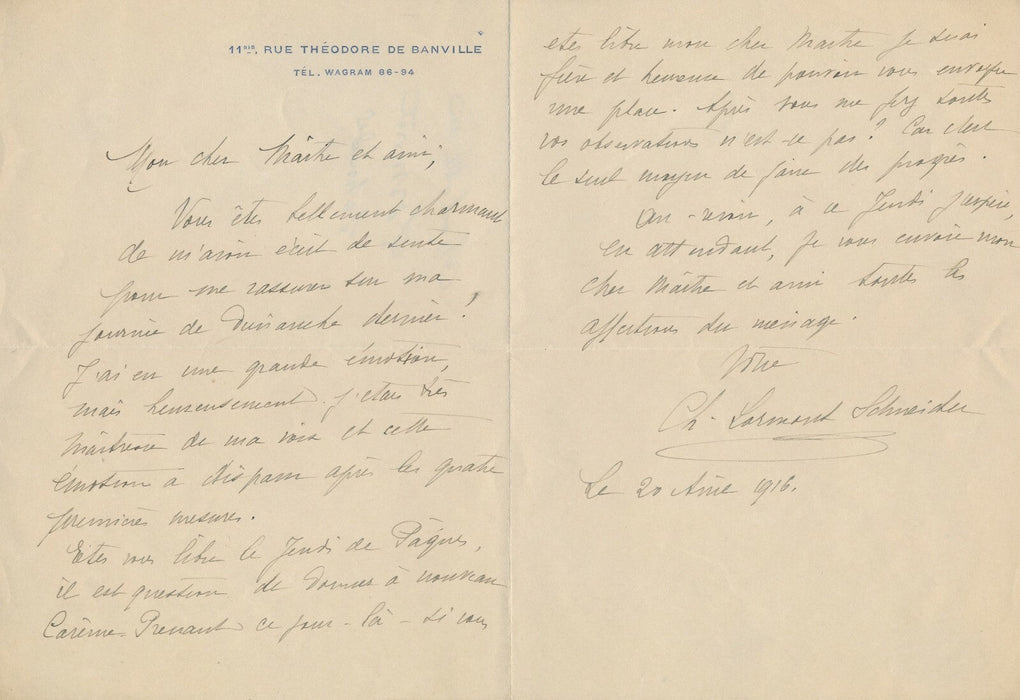 11BIS, RUE THÉODORE DE BANVILLE
TÉL. WAGRAM 86-94
Mon cher Maître et ami,
Vous êtes tellement charmant
de m'avoir écrit de suite
pour me rassurer sur ma
journée de Dimanche dernier!
J'ai eu une grande émotion,
mais heureusement j'étais très
maîtresse de ma voix et cette
émotion à disparu après les quatre
premières mesures.
Etes vous libre le Jeudi de Pâques,
il est question de donner à nouveau
Carême-Prenant ce jour-là - si vous
etes libre mon cher Maitre je serai
fière et heureuse de pouvoir vous envoyer
une place. Après vous me ferez toutes
vos observations n'est-ce pas? Car c'est
le seul moyen de faire des progrès.
Au-revoir, à ce Jeudi j'espère,
en attendant, je vous envoie mon
cher Maître et ami toutes les
affections du ménage.
Votre
Ch. Lormont Schneider
Le 20 Avril 1916.